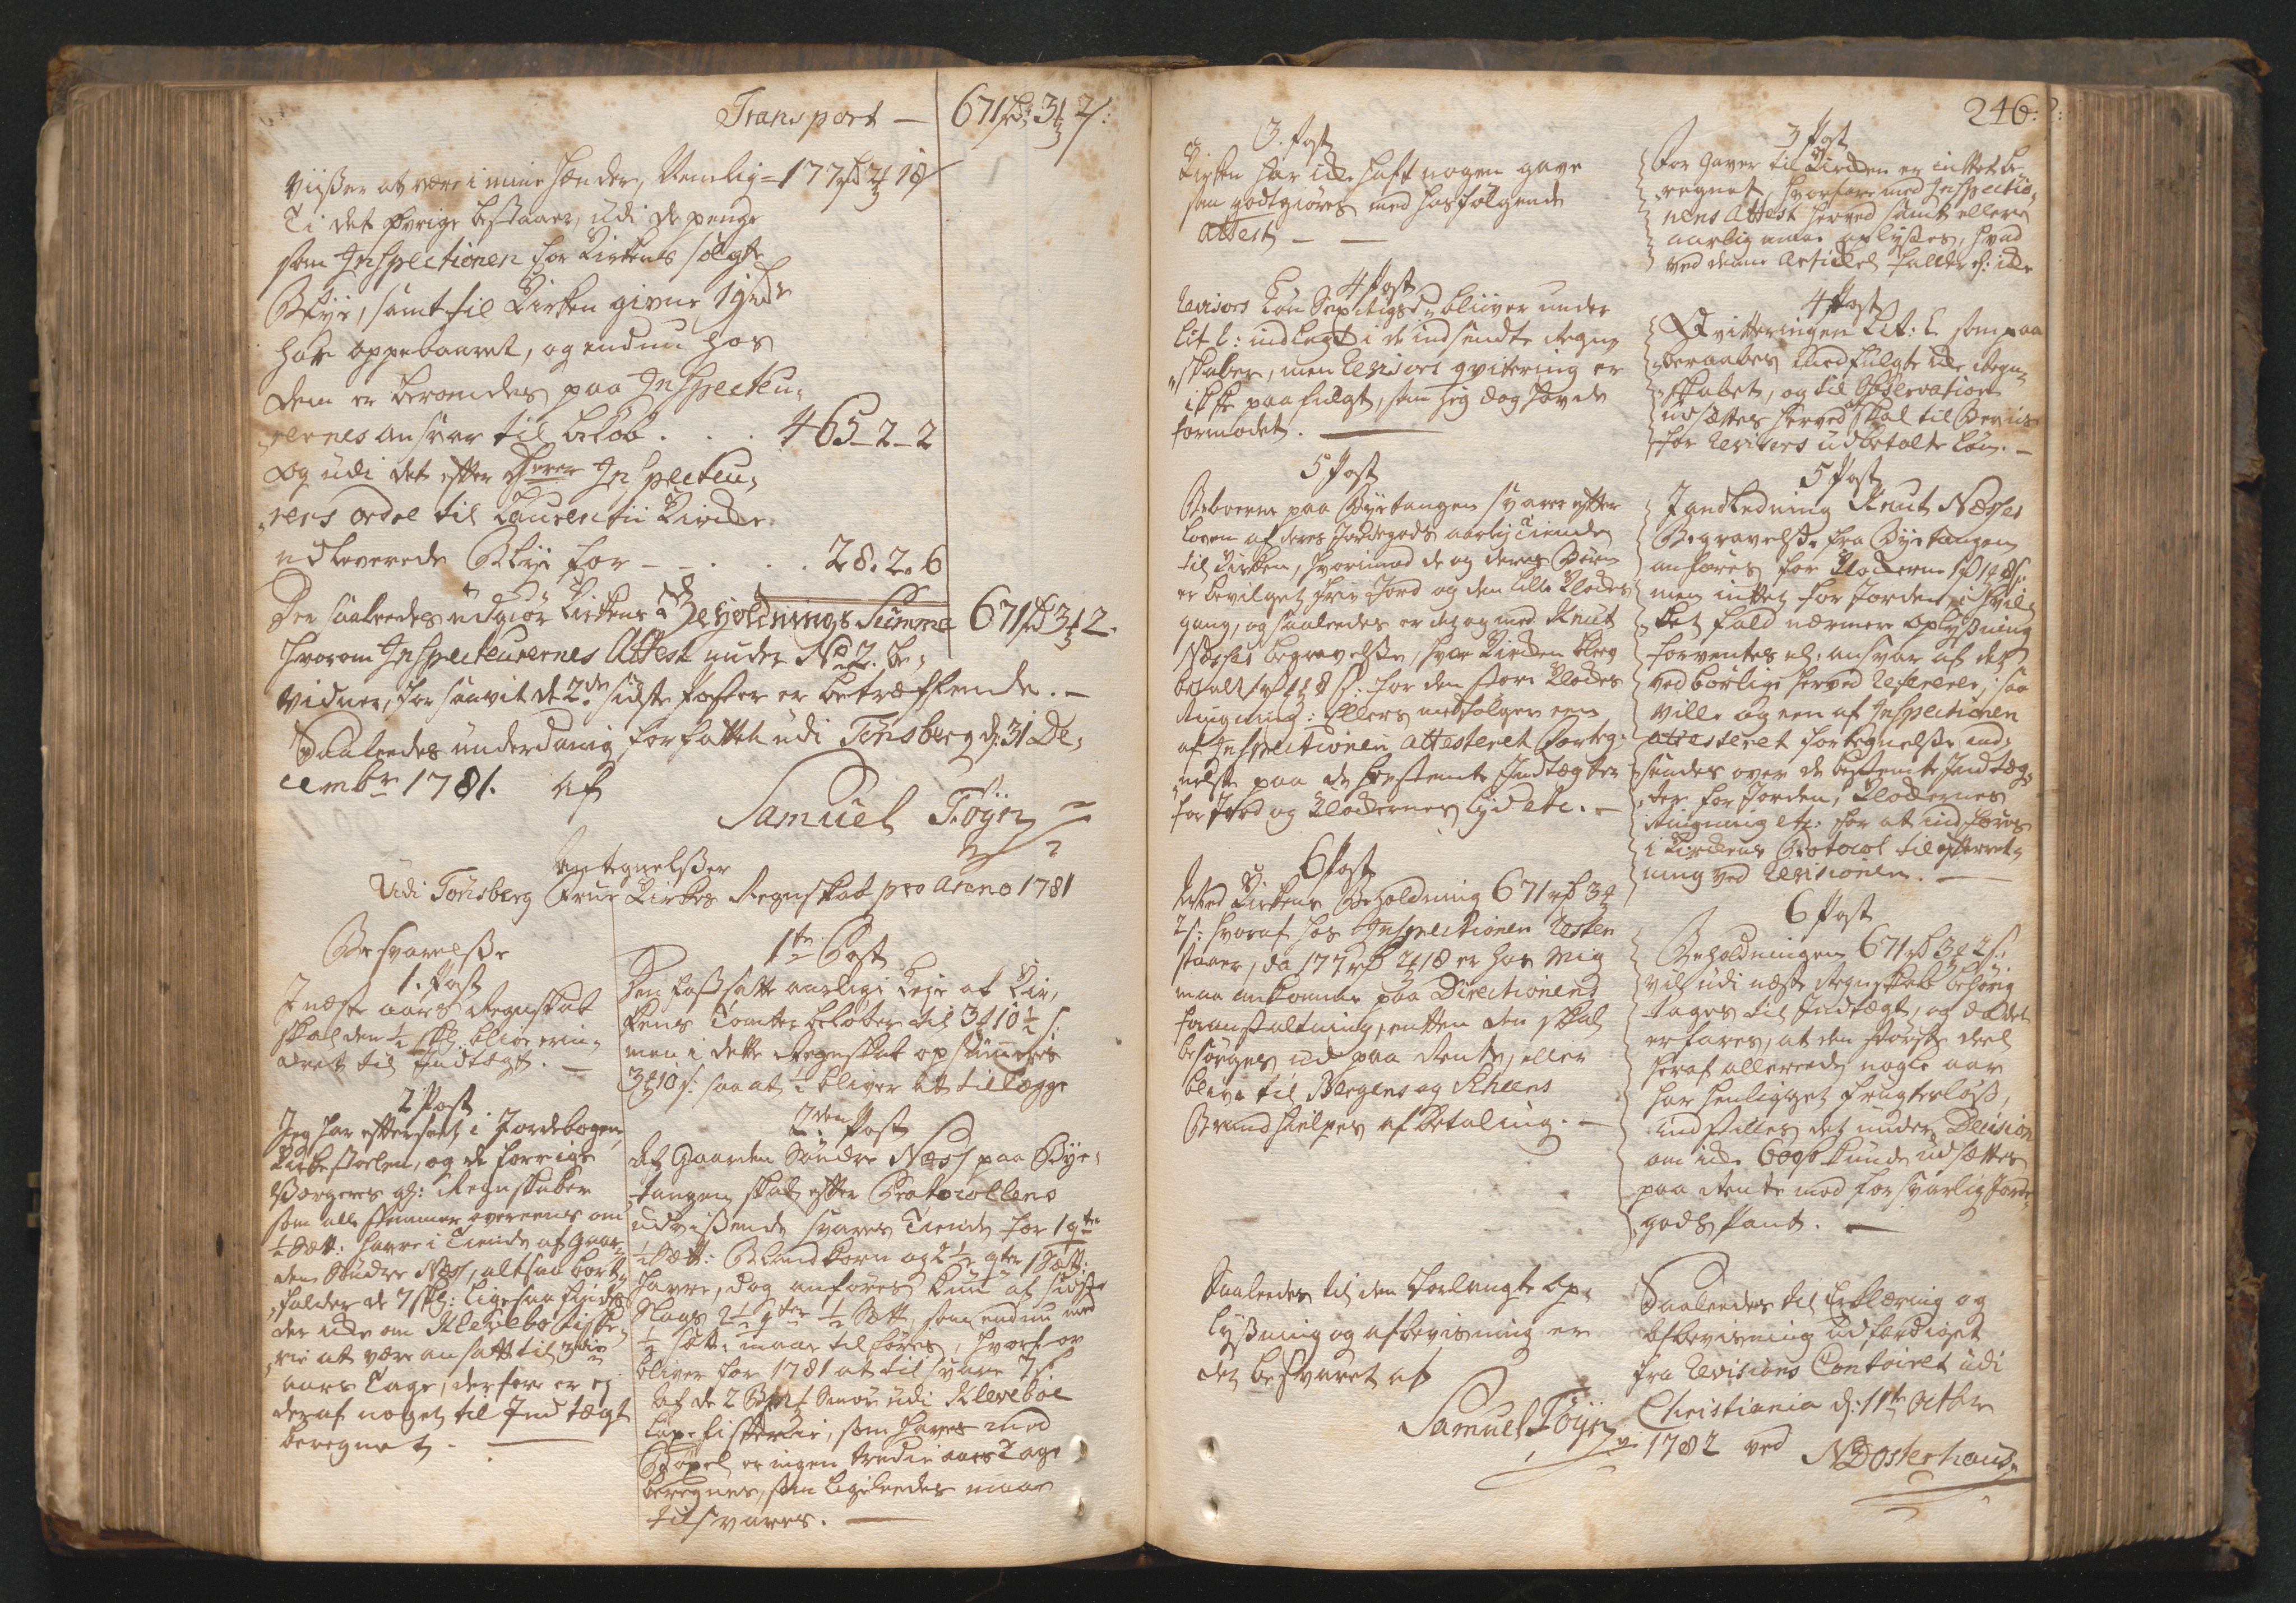 Transport — 671 rd 3 ¥ 2 s:
viißer at være i mine Hænder, Nemlig = 177 rd ¥ 18
I det øvrige bestaaer, udi de penge
som Inspectionen for Kirkens solgte
Blye, samt til Kirken givne
har oppebaaret, og endnu hos
dem er beroendes paa Inspecteu,
,rernes ansvar til beløb . . . 465 - 2 - 2
og udi det efter Herrer Inspecteu,
,rers ordre til Laurentii Kirke
udleverede Blye for — . . . 28. 2. 6
Der saaledes udgiør Kirkens Beholdnings Summa 671 rd 3 ¥ 2.
Hvorom Inspecteurernes Attest under No 2. be,
vidner, for saavit de 2de sidste Poster er betræffende. —
Saaledes underdanig forfattet udi Tönsberg d: 31 De,
cembr 1781. af
Samuel Föyn
Antegnelßer
Udi Tönsberg Frue Kirkes Regnskab pro Anno 1781
Besvarelße
1. Post
I næste aars Regnskab
skal den ½ skl. blive erin,
dret til Indtægt. —
2 Post
Jeg har efterseet i Jordebogen,
Kirkestolen, og de forrige
Værgeres gl: Regnskaber
som alle stemmer overeens om
½ Sætt: havre i Tiende af Gaar,
den Søndre Næss, altsaa bort,
,falder de 7 skl: ligesaa findes
der ikke om Klevebo fiske,
,rie at være ansatt til 3die
aars Tage, derfore er ej
deraf noget til Indtægt
beregnet. —
1te Post
Den fastsatte aarlige Leje af Kir,
kens Tomter beløber til 3 ¥ 10 ½ s:
men i dette Regnskab opsummeres
3 ¥ 10 s: saa at ½ bliver at tillegge
2den Post
Af Gaarden Søndre Næss paa Bye,
tangen skal efter Protocollens
udvißende svares Tiende for 1 qtr
½ Sætt: Blandkorn og 2 ½ qter 1 Sætt:
havre, dog anføres kun af sidste
Slags 2 ½ qter ½ Sætt, som endnu med
½ Sætt: maae tilføres, hvorfor
bliver for 1781 at tilsvare 7 s
Af de 2 Bpd Smör udi Klevebøe
Laxefiskerie, som haves med
Böxel er ingen tredie aars Tage
beregnes, som ligeledes maae
tilsvares. —
246:
3. Post
Kirken har ikke haft nogen gave
som godtgiöres med hosfølgende
Attest — —
4 Post
Revisors Løn bliiver under
Lit C: indlagt i de indsendte Regn,
,skaber, men Revisors qvitering er
ikke paafulgt, som jeg dog havde
formodet. —
5 Post
Beboerne paa Byetangen svarer efter
Loven af deres Jordegods aarlig Tiende
til Kirken, hvorimod de og deres Børn
er bevilget frie Jord og den lille Klokkes
gang, og saaledes er det og med Knut
Næsses begravelße, hvor Kirken blev
betalt 1 rd 1 ¥ 8 s: for den store Klokkes
Ringning: Ellers medfølger een
af Inspectionen attesteret forteg,
nelße paa de bestemte Indtægter
for Jord og Klokkernes Lyd etc. —
6 Post
Med Kirkens Beholdning 671 rd 3 ¥
2 s: hvoraf hos Inspectionen Resten
staaer, da 177 rd ¥ 18 er hos mig
maa ankomme paa Directionens
foranstaltning, enten den skal
besørges ud paa Rente, eller
blive til Bergens og Scheens
Brandhielpes afbetaling. —
Saaledes til den forlangte op,
lyßning og afbevisning er
det besvaret af
Samuel Föyn
3 Post
For Gaver til Kirken er intet be,
,regnet, hvorfore med Inspectio,
nens Attest herved samt ellers
aarlig maae oplyses, hvad
ved denne Articul falder el: ikke
4 Post
Qvitteringen Lit: C som paa
beraabes medfulgte ikke Regn,
,skabet, og til Observation
udsættes herved at skal til Beviis
for Revisors udbetalte Løn. —
5 Post
I anledning Knut Næsses
Begravelße fra Byetangen
anføres for Klokkerne 1 rd 1 ¥ 8 s:
men intet for Jorden, i hvil,
,ket fald nærmere oplysning
forventes el: ansvar af det
vedbørlige herved refererer, saa
ville og een af Inspectionen
attesteret fortegnelße ind,
sendes over de bestemte Indtæg,
,ter for Jorden, Klokkernes
Ringning etc: for at indføres
i Kirkens Protocol til efterret,
ning ved Revisionen. —
6 Post
Beholdningen 671 rd 3 ¥ 2 s:
vil udi næste Regnskab behørig
tages til Indtægt, og da det
erfares, at den største deel
heraf allereede nogle aar
har henligget frugtesløs,
indstilles det under Decision
om ikke 600 rd kunde udsættes
paa Rente mod forsvarlig Jorde,
gods Pant. —
Saaledes til Erklæring og
afbevisning udfærdiget
fra Revisions Contoiret udi
Christiania d: 11te Octbr
1782 ved
N D Osterhaus